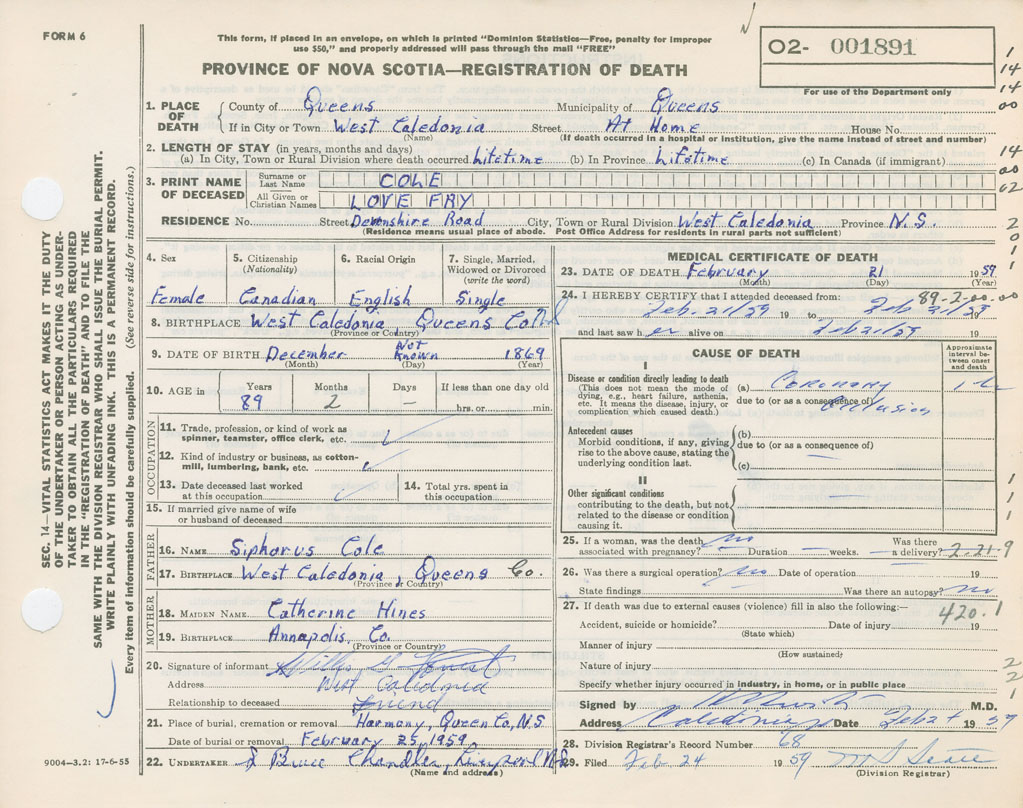 FORM 6
This form, if placed in an envelope, on which is printed "Dominion Statistics—Free, penalty for improper
use $50," and properly addressed will pass through the mail "FREE"
PROVINCE OF NOVA SCOTIA—REGISTRATION OF DEATH
O2- 001891
For use of the Department only
1
14
14
00
14
00
02
2
0
1
1. PLACE OF DEATH { County of Queens Municipality of Queens
If in City or Town West Caledonia Street At Home House No.
(Name) (If death occurred in a hospital or institution, give the name instead of street and number)
2. LENGTH OF STAY (in years, months and days)
(a) In City, Town or Rural Division where death occurred Lifetime (b) In Province Lifetime (c) In Canada (if immigrant)
3. PRINT NAME OF DECEASED Surname or Last Name COLE
All Given or Christian Names LOVE FRY
RESIDENCE No. Street Devonshire Road City, Town or Rural Division West Caledonia Province N.S.
(Residence means usual place of abode. Post Office Address for residents in rural parts not sufficient)
4. Sex 5. Citizenship (Nationality) 6. Racial Origin 7. Single, Married, Widowed or Divorced (write the word)
Female Canadian English Single
8. BIRTHPLACE West Caledonia Queens Co N.S
(Province or Country)
9. DATE OF BIRTH December Not Known 1869
(Month) (Day) (Year)
10. AGE in Years Months Days If less than one day old
89 2 — hrs. or min.
OCCUPATION
11. Trade, profession, or kind of work as
spinner, teamster, office clerk, etc.
12. Kind of industry or business, as cotton-
mill, lumbering, bank, etc.
13. Date deceased last worked
at this occupation
14. Total yrs. spent in
this occupation
15. If married give name of wife
or husband of deceased
FATHER
16. NAME Siphorus Cole
17. BIRTHPLACE West Caledonia, Queens Co.
(Province or Country)
MOTHER
18. MAIDEN NAME Catherine Hines
19. BIRTHPLACE Annapolis, Co.
(Province or Country)
20. Signature of informant
Address West Caledonia
Relationship to deceased friend
21. Place of burial, cremation or removal Harmony, Queen Co, N.S.
Date of burial or removal February 25, 1959
22. UNDERTAKER Bruce Chandler, Liverpool N.S
(Name and address)
MEDICAL CERTIFICATE OF DEATH
23. DATE OF DEATH February 21 1959
(Month) (Day) (Year)
89-2-00-00
24. I HEREBY CERTIFY that I attended deceased from:
Feb. 21/59 19 to Feb 21/59 19
and last saw her alive on Feb 21/59 19
CAUSE OF DEATH
Approximate interval between onset and death
I
Disease or condition directly leading to death
(This does not mean the mode of
dying, e.g., heart failure, asthenia,
etc. It means the disease, injury, or
complication which caused death.)
(a) Coronary
due to (or as a consequence of)
occlusion
Antecedent causes
Morbid conditions, if any, giving
rise to the above cause, stating the
underlying condition last.
(b)
due to (or as a consequence of)
(c)
II
Other significant conditions
contributing to the death, but not
related to the disease or condition
causing it.
1
1
1
25. If a woman, was the death
associated with pregnancy? no Duration — weeks. Was there
a delivery? 2-21-9
26. Was there a surgical operation? no Date of operation — 19
State findings Was there an autopsy? no
27. If death was due to external causes (violence) fill in also the following:—
420.1
Accident, suicide or homicide? Date of injury 19
(State which)
Manner of injury
(How sustained)
Nature of injury
Specify whether injury occurred in industry, in home, or in public place
2
2
1
Signed by M.D.
Address Caledonia Date Feb 24 1959
28. Division Registrar's Record Number 68
29. Filed Feb 24 1959
(Division Registrar)
SEC. 14—VITAL STATISTICS ACT MAKES IT THE DUTY
OF THE UNDERTAKER OR PERSON ACTING AS UNDER-
TAKER TO OBTAIN ALL THE PARTICULARS REQUIRED
IN THE "REGISTRATION OF DEATH" AND TO FILE THE
SAME WITH THE DIVISION REGISTRAR WHO SHALL ISSUE THE BURIAL PERMIT.
WRITE PLAINLY WITH UNFADING INK. THIS IS A PERMANENT RECORD.
Every item of information should be carefully supplied. (See reverse side for instructions.)
9004—3.2: 17-6-55